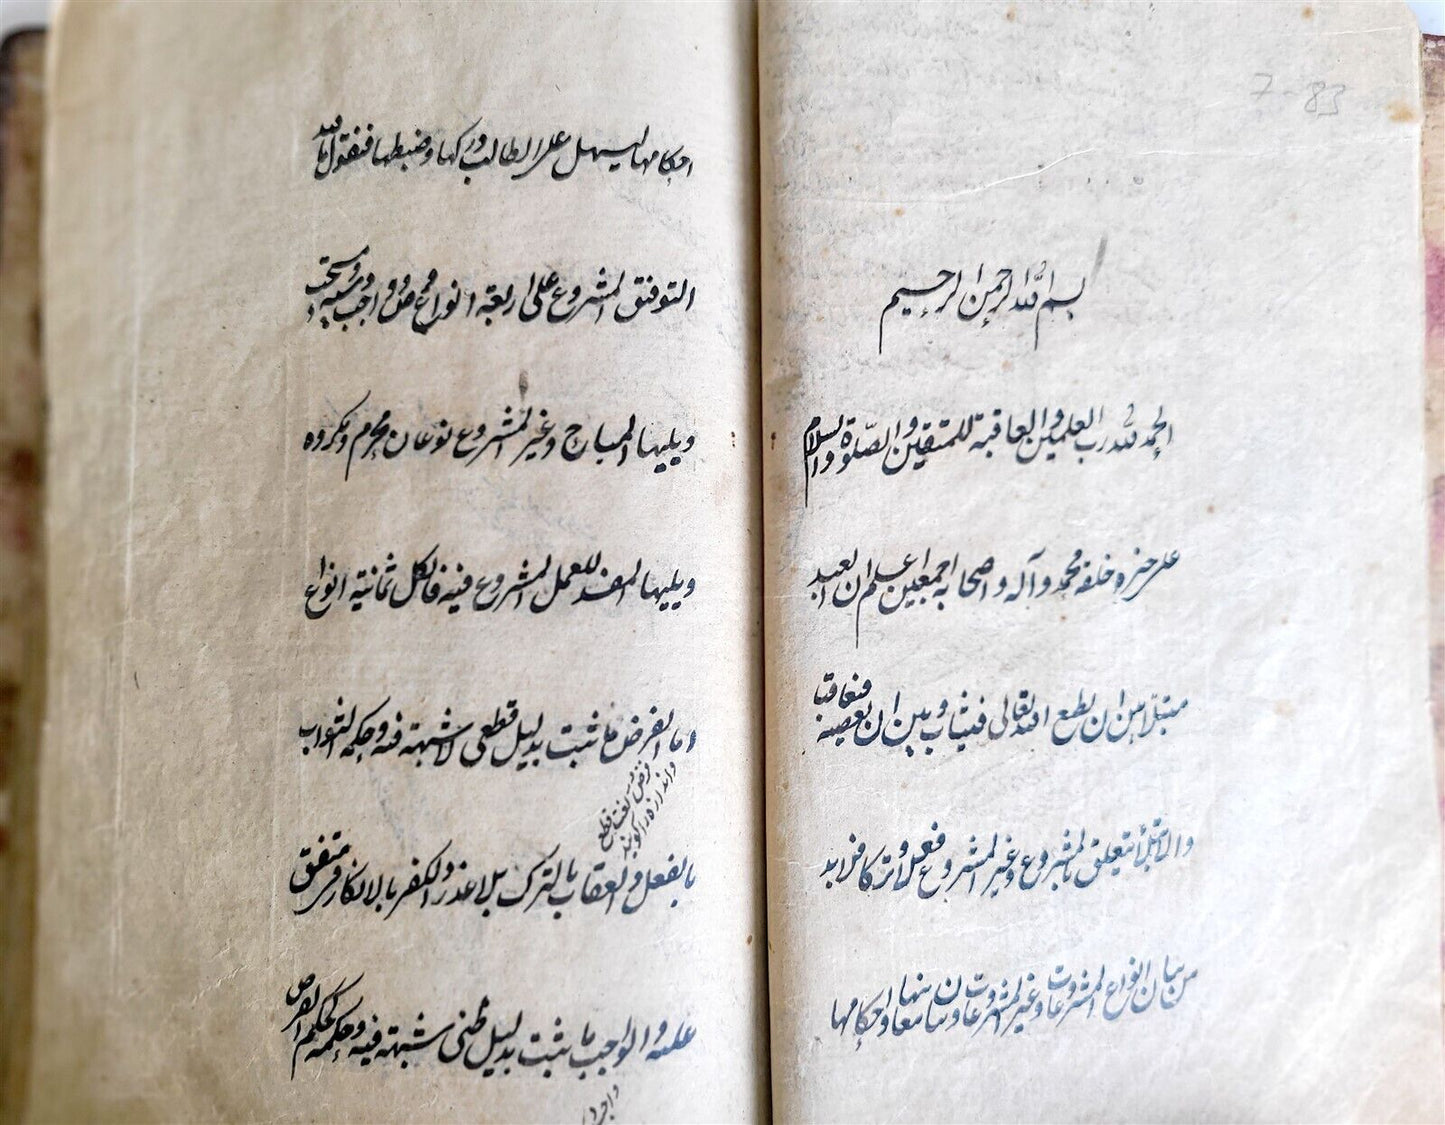 7-83
بسم الله الرحمن الرحيم
الحمد لله رب العلمين والعاقبة للمتقين والصلوة والسلام
على خير خلقه محمد وآله واصحابه اجمعين اعلم ان العبد
مبتلا بين ان يطع الله تعالى فيثاب وبين ان يعصيه فيعاقبا
والابتلأ يتعلق بالمشروع وغير المشروع فعلا وتركا فلابد
من بيان انواع المشروعات وغير المشروعات وبيان معانيها واحكامها
احكامها ليسهل على الطالب دركها وضبطها فنقول بالله
التوفيق المشروع على اربعة انواع فرض وواجب وسنة ومستحب
ويليها المباح وغير المشروع نوعان محرم ومكروه
ويليها المفسد للعمل المشروع فيه فالكل ثمانية انواع
اما الفرض ما ثبت بدليل قطعي لا شبهة فيه وحكمه الثواب
فرض در لغت قطع
واندازه را كويند
بالفعل والعقاب بالترك بلا عذر والكفر بالانكار في متفق
عليه والواجب ما يثبت بدليل ظنى شبهة فيه وحكمه كحكم الفرض